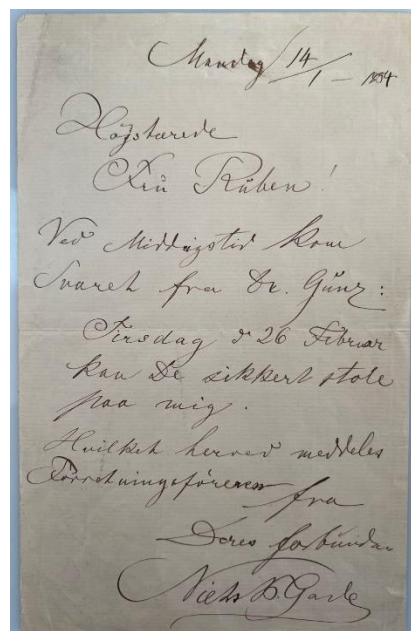 Mandag 14/1 – 1884
Højstærede
Frü Rüben!
Ved Middagstid kom
Svaret fra Dr. Günz:
Tirsdag d 26 Februar
kan De sikkert stole
paa mig.
Hvilket herved meddeles
Forretningsføreren
fra
Deres forbündne
Niels W. Gade